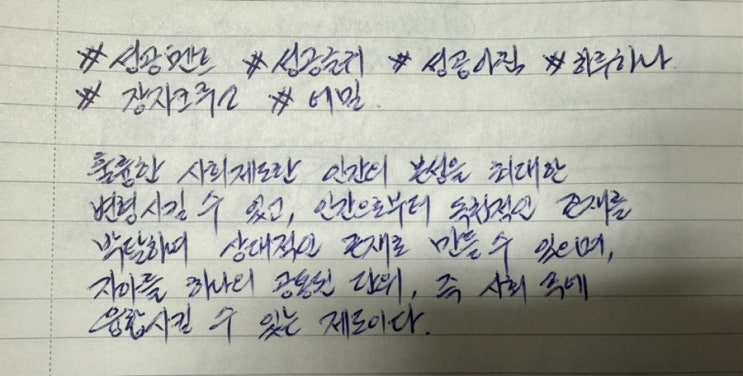 #성공멘트 #성공습관 #성공아침 #하루하나
#장자크루소 #에밀
훌륭한 사회제도란 인간의 본성을 최대한
변형시킬 수 있고, 인간으로부터 독립적인 존재를
박탈하며 상대적인 존재로 만들 수 있으며,
자아를 하나의 공통된 단위, 즉 사회 속에
융합시킬 수 있는 제도이다.